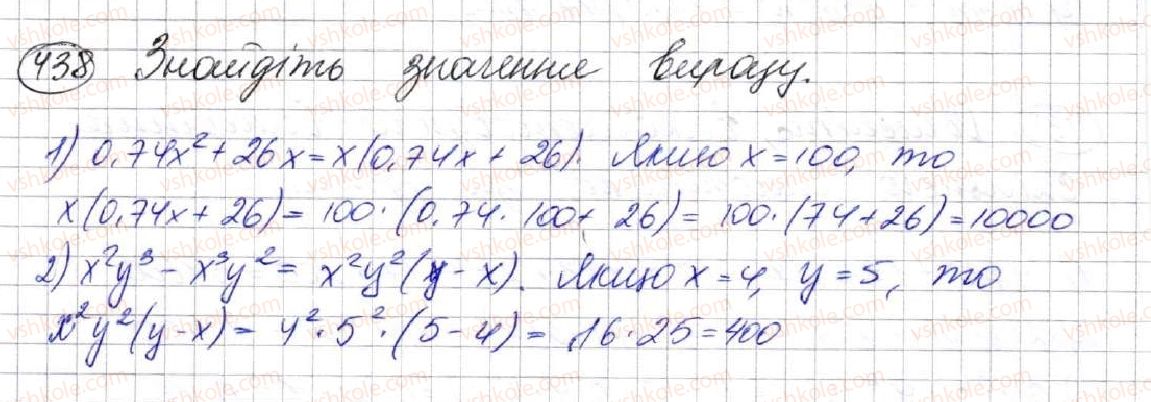 438 Знайдіть значення виразу.
1) 0,74x² + 26x = x(0,74x + 26). Якщо x = 100, то
x(0,74x + 26) = 100 · (0,74 · 100 + 26) = 100 · (74 + 26) = 10000
2) x²y³ - x³y² = x²y²(y - x). Якщо x = 4, y = 5, то
x²y²(y - x) = 4² · 5² · (5 - 4) = 16 · 25 = 400